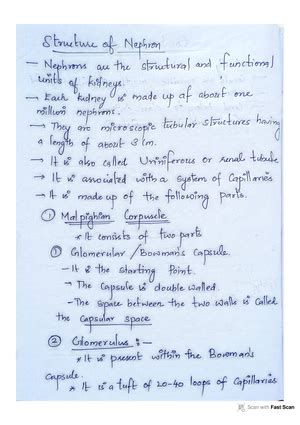 Structure of Nephron
- Nephrons are the structural and functional
units of kidneys.
→ Each kidney is made up of about one
million nephrons.
→ They are microscopic tubular structures having
a length of about 3 cm.
→ It is also called Uriniferous or renal tubule
→ It is associated with a system of Capillaries
→ It is made up of the following parts.
① Malpighian Corpuscle
* It consists of two parts
① Glomerular / Bowman's Capsule.
- It is the starting Point.
→ The Capsule is double walled.
- The space between the two walls is called
the capsular space
② Glomerulus :-
* It is present within the Bowman's
Capsule.
* It is a tuft of 20-40 loops of Capillaries
Scan with Fast Scan